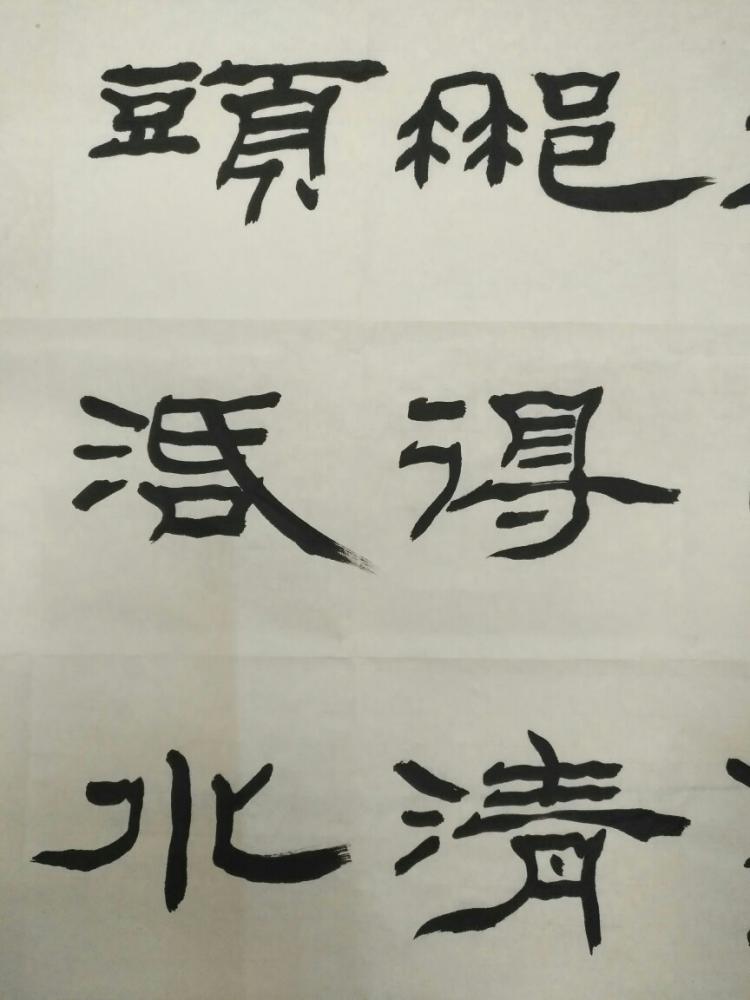 那得清
頭活水